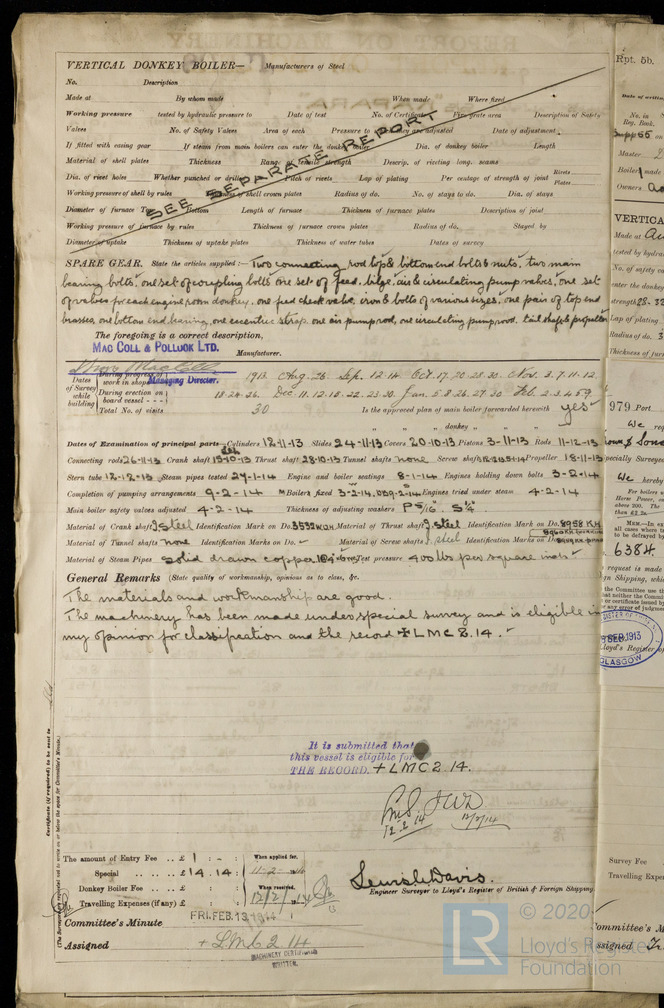 VERTICAL DONKEY BOILER— Manufacturers of Steel
No. Description
Made at By whom made When made Where fixed
Working pressure tested by hydraulic pressure to Date of test No. of Certificate Fire grate area Description of Safety
Valves No. of Safety Valves Area of each Pressure to which they are adjusted Date of adjustment
If fitted with easing gear If steam from main boilers can enter the donkey boiler Dia. of donkey boiler Length
Material of shell plates Thickness Range of tensile strength Descrip. of riveting long. seams
Dia. of rivet holes Whether punched or drilled Pitch of rivets Lap of plating Per centage of strength of joint Rivets Plates
Working pressure of shell by rules Thickness of shell crown plates Radius of do. No. of stays to do. Dia. of stays
Diameter of furnace Top Bottom Length of furnace Thickness of furnace plates Description of joint
Working pressure of furnace by rules Thickness of furnace crown plates Radius of do. Stayed by
Diameter of uptake Thickness of uptake plates Thickness of water tubes Dates of survey
SEE SEPARATE REPORT
SPARE GEAR. State the articles supplied:— Two connecting rod top & bottom end bolts & nuts, two main
bearing bolts, one set of coupling bolts one set of feed, bilge, air & circulating pump valves, one set
of valves for each engine room donkey, one feed check valve, iron & bolts of various sizes, one pair of top end
brasses, one bottom end bearing, one eccentric strap, one air pump rod, one circulating pump rod. tail shaft & propeller
The foregoing is a correct description,
MAC COLL & POLLOCK LTD. Manufacturer.
Managing Director.
Dates of Survey while building
During progress of work in shops - - 1913 Aug. 26. Sep. 12. 14. Oct. 17. 20. 28. 30. Nov. 3. 7. 11. 12.
During erection on board vessel - - - 18. 24. 26. Dec. 11. 12. 18. 22. 23. 30. Jan. 5. 8. 26. 27. 30 Feb. 2. 3. 4. 5. 9.
Total No. of visits 30 Is the approved plan of main boiler forwarded herewith yes
" " " donkey " " "
Dates of Examination of principal parts—Cylinders 12-11-13 Slides 24-11-13 Covers 20-10-13 Pistons 3-11-13 Rods 11-12-13
Connecting rods 26-11-13 Crank shaft Thrust shaft 28-10-13 Tunnel shafts none Screw shaft Propeller 18-11-13
Stern tube 12-12-13 Steam pipes tested 27-1-14 Engine and boiler seatings 8-1-14 Engines holding down bolts 3-2-14
Completion of pumping arrangements 9-2-14 Boilers fixed 3-2-14, Engines tried under steam 4-2-14
Main boiler safety valves adjusted 4-2-14 Thickness of adjusting washers
Material of Crank shaft I Steel Identification Mark on Do. Material of Thrust shaft I. steel Identification Mark on Do. 8958 KH
Material of Tunnel shafts none Identification Marks on Do. - Material of Screw shafts I. steel Identification Marks on Do.
Material of Steam Pipes Solid drawn copper Test pressure 400 lbs per square inch
General Remarks (State quality of workmanship, opinions as to class, &c.
The materials and workmanship are good.
The machinery has been made under special survey and is eligible in
my opinion for classification and the record +LMC 2.14.
It is submitted that
this vessel is eligible for
THE RECORD. + LMC 2 14.
12.2.14
The amount of Entry Fee .. £ 1 : - : When applied for,
Special .. .. £ 14 : 14 : 11-2-1914
Donkey Boiler Fee .. £ : : When received,
Travelling Expenses (if any) £ : : 12/2/1914
Lewis C Davis.
Engineer Surveyor to Lloyd's Register of British & Foreign Shipping
Committee's Minute FRI. FEB. 13 1914
Assigned + LMC 2 14
MACHINERY CERTIFICATE
WRITTEN
Certificate (if required) to be sent to
(The Surveyors are requested not to write on or below the space for Committee's Minute.)
Rpt. 5b.
No. in
Reg. Book.
Master
Boiler made
Owners
VERTICA
Made at
tested by hydra
No. of safety va
enter the donkey
strength 28-32
Lap of plating
Radius of do.
Thickness of fur
979 Port
We
specially Surveyed
We hereby
6384
request is made
SEP 1913
Lloyd's Register
GLASGOW
Survey Fee
Travelling Expen
Committee's M
Assigned
LR
© 2020
Lloyd's Register
Foundation